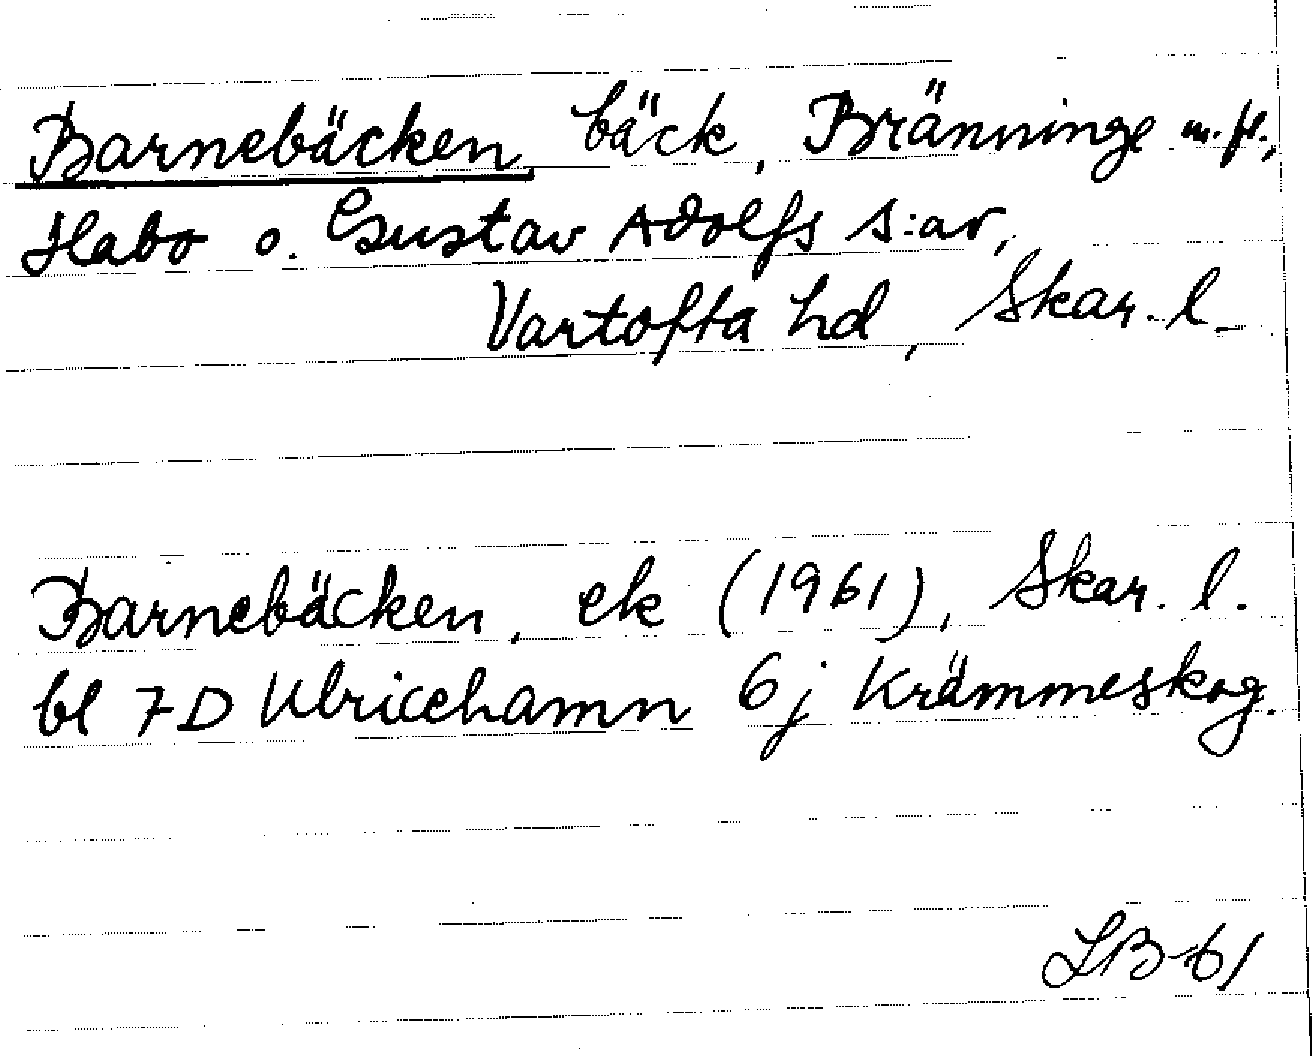 Barnebäcken, bäck, Bränninge m.fl.,
Habo o. Gustav Adolfs s:ar,
Vartofta hd, Skar. l.
Barnebäcken, ek (1961), Skar. l.
bl 7D Ulricehamn 6j Krämmeskog.
LB-61